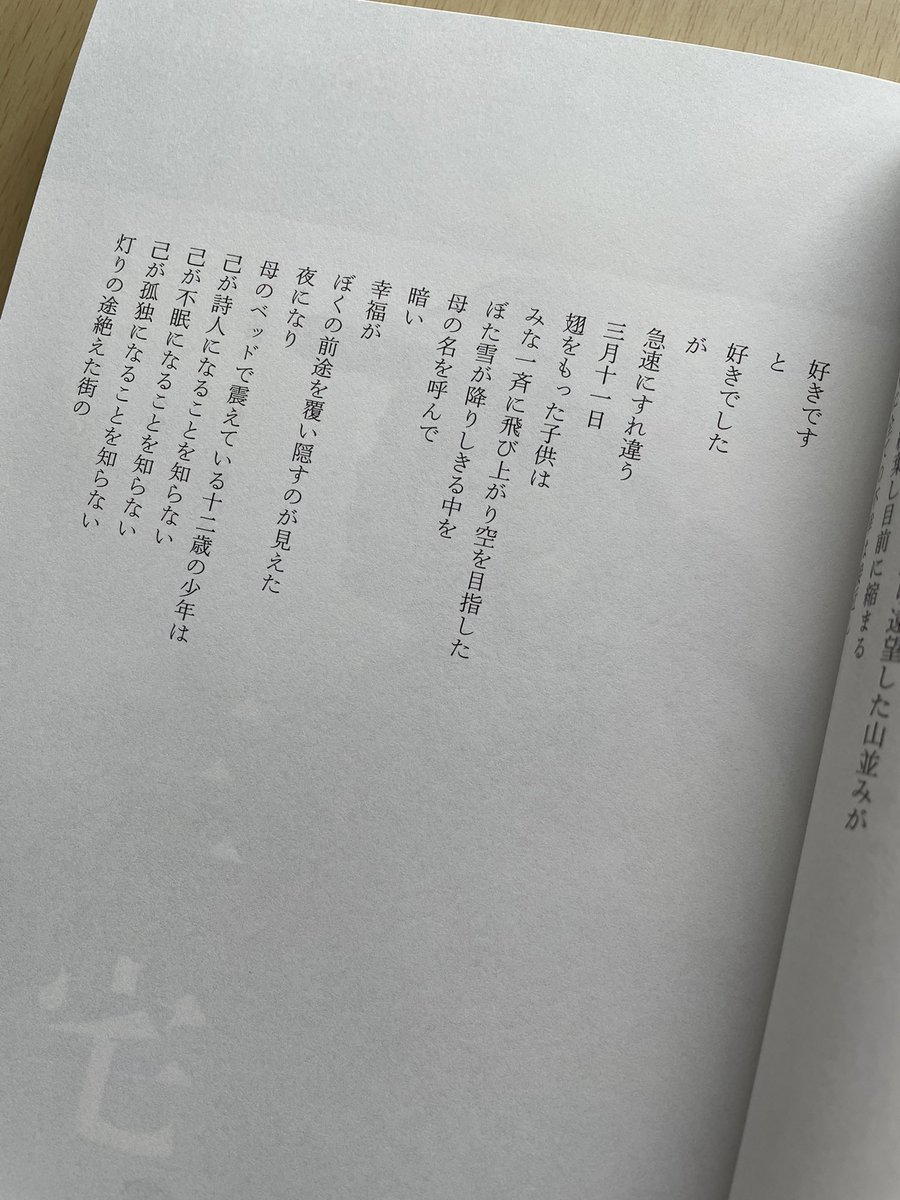 遠望した山並みが
し目前に縮まる
好きです
と
好きでした
が
急速にすれ違う
三月十一日
翅をもった子供は
みな一斉に飛び上がり空を目指した
ぼた雪が降りしきる中を
母の名を呼んで
暗い
幸福が
ぼくの前途を覆い隠すのが見えた
夜になり
母のベッドで震えている十二歳の少年は
己が詩人になることを知らない
己が不眠になることを知らない
己が孤独になることを知らない
灯りの途絶えた街の